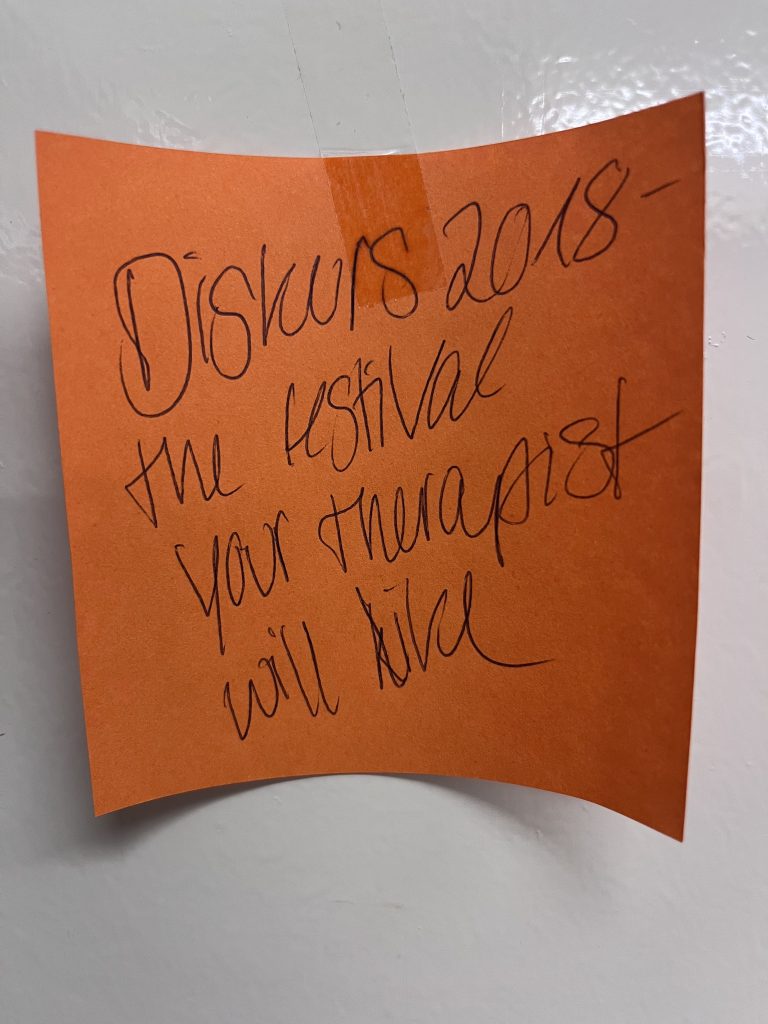 Diskurs 2018-
the festival
your therapist
will like